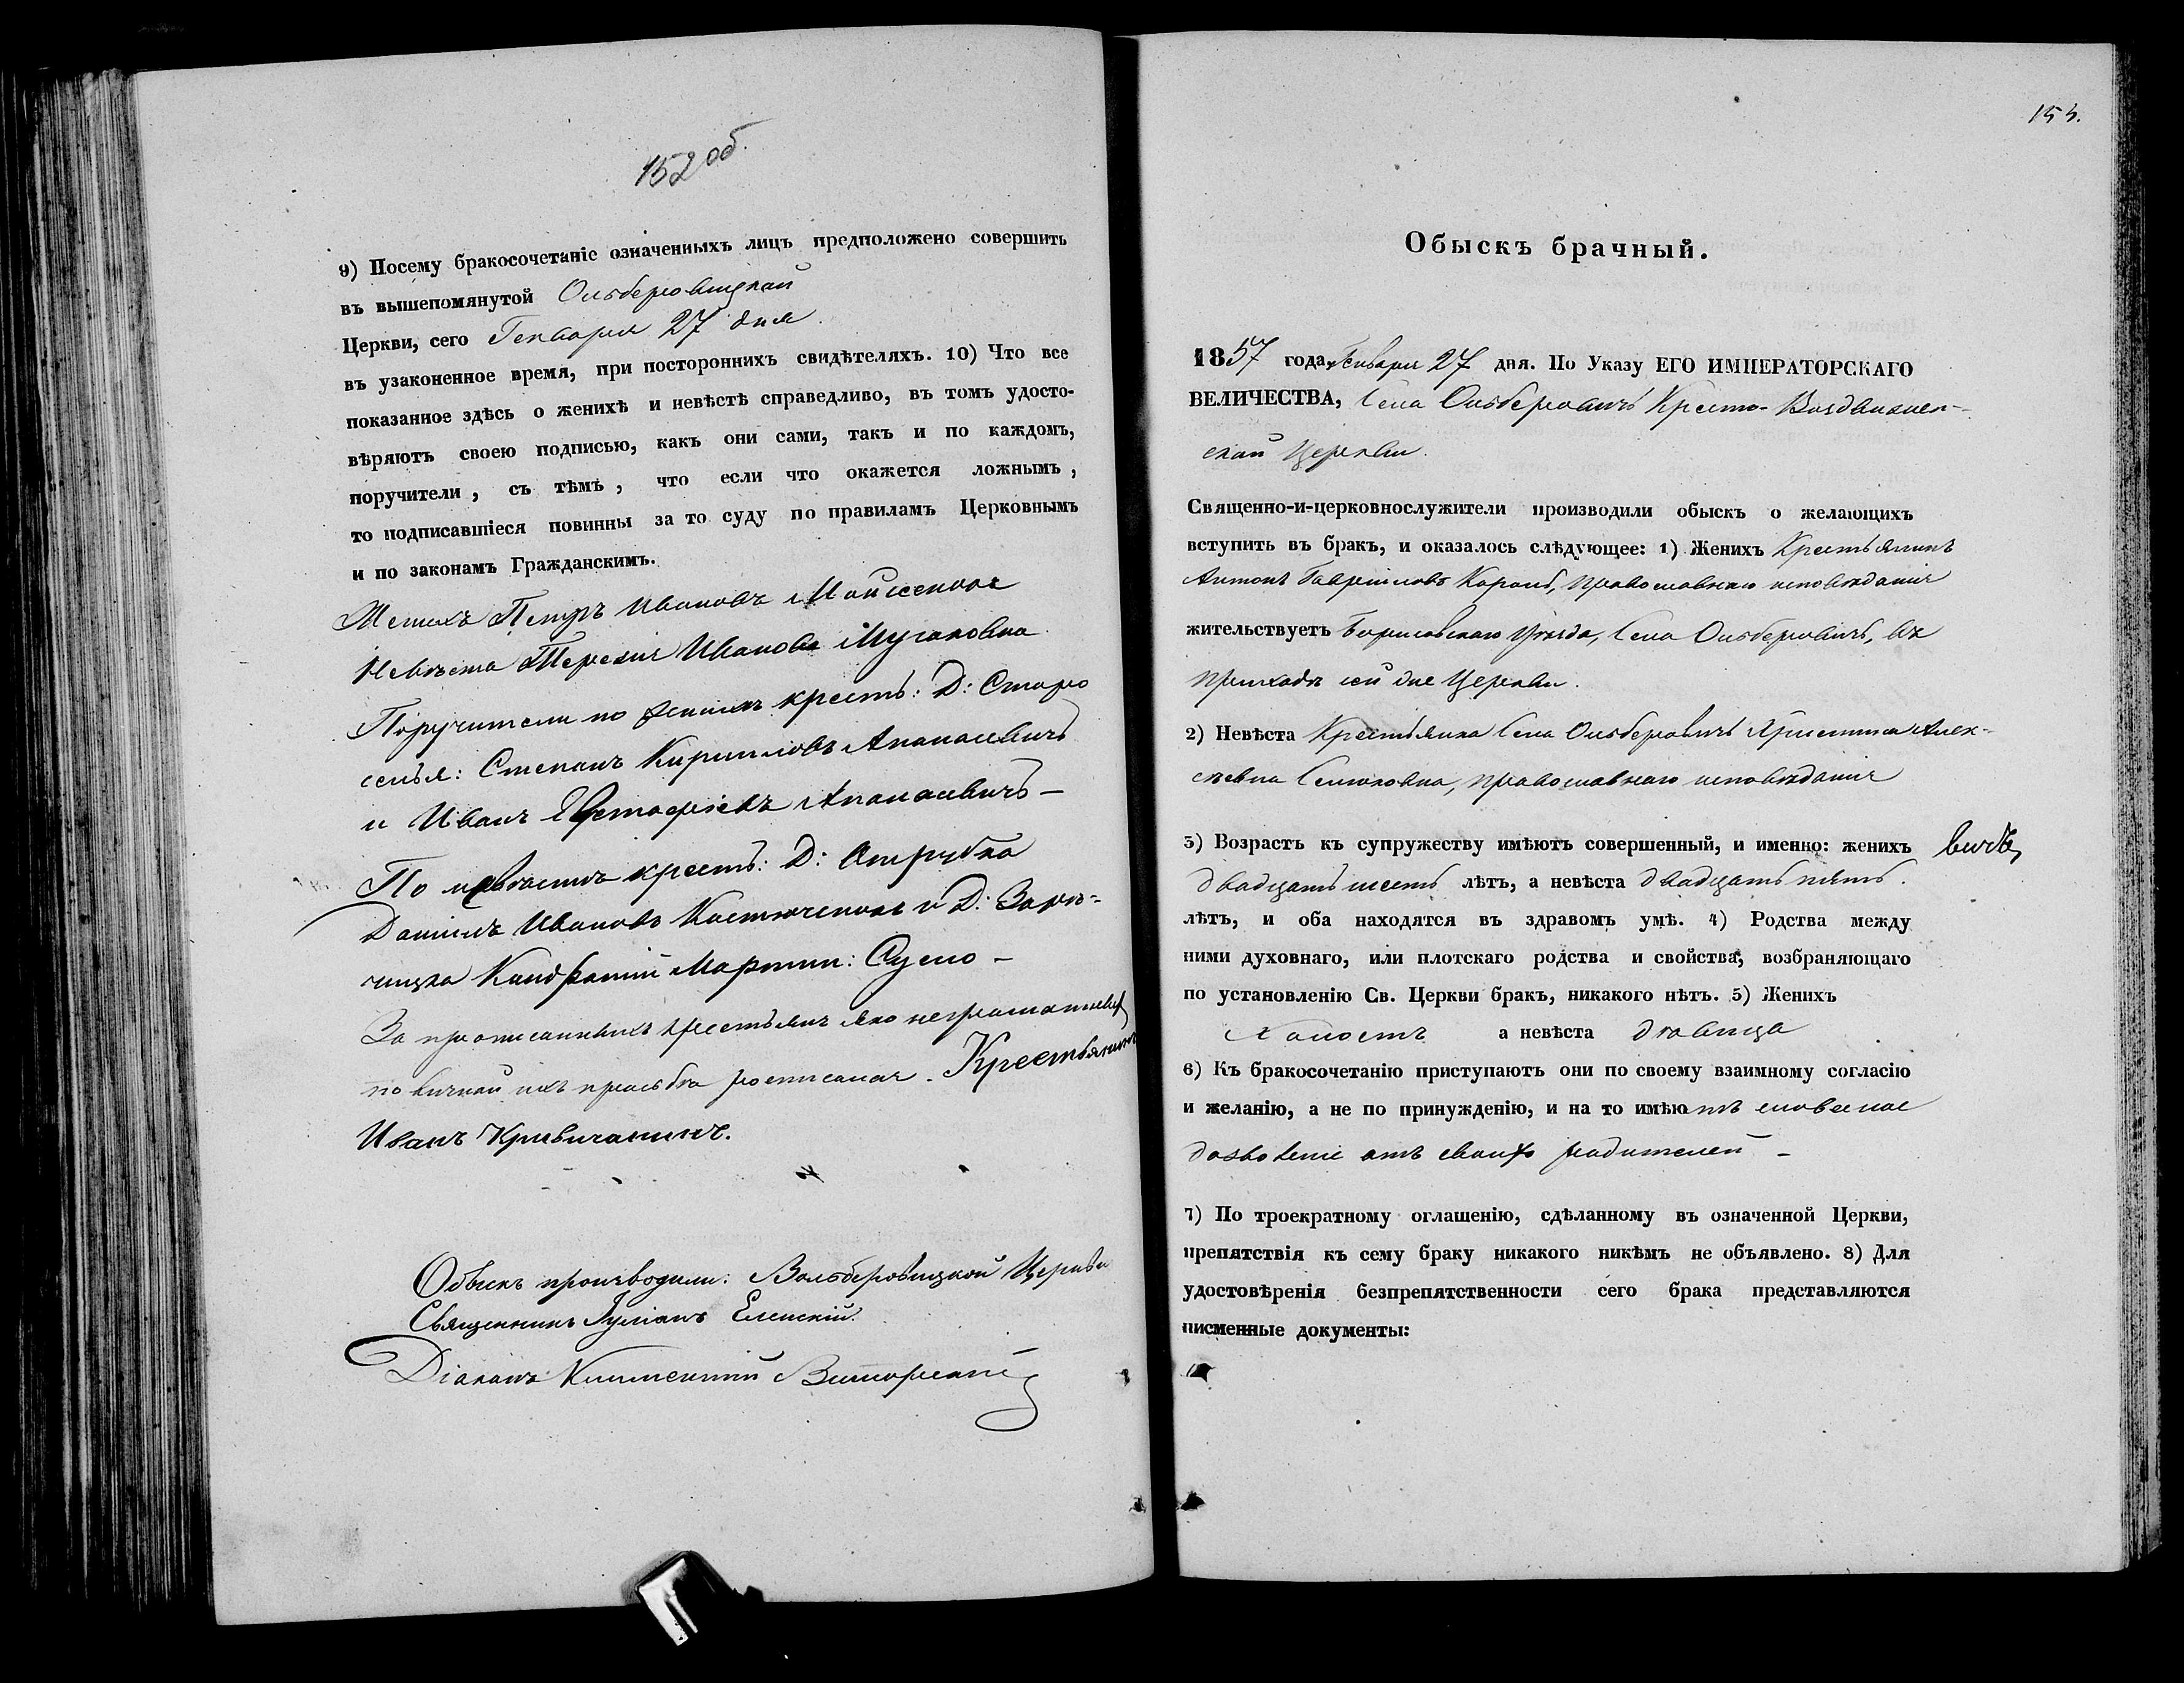 152 об.
9) Посему бракосочетаніе означенныхъ лицъ предположено совершить
въ вышепомянутой Ольберовицкой
Церкви, сего Генваря 27 дня.
въ узаконенное время, при постороннихъ свидѣтеляхъ. 10) Что все
показанное здѣсь о женихѣ и невѣстѣ справедливо, въ томъ удосто-
вѣряютъ своею подписью, какъ они сами, такъ и по каждомъ,
поручители, съ тѣмъ, что если что окажется ложнымъ,
то подписавшіеся повинны за то суду по правиламъ Церковнымъ
и по законамъ Гражданскимъ.
Женихъ Петръ Ивановъ
Невѣста Терезія Иванова
Поручители по женихѣ крест: Д: Старо
селья: Степанъ Кириловъ Апанасевичъ
и Иванъ Апанасевичъ -
По невѣстѣ крест: Д: Отрубка
Даніилъ Ивановъ и Д: Зарѣ-
чицка Кандратій Мартин: -
За прописанныхъ крестьянъ яко неграмотныхъ
по личной ихъ прозьбѣ росписался. Крестьянинъ
Иванъ Кривичанинъ.
Обыскъ производили: Вольберовицкой Церкви
Священникъ Іуліанъ Еленскій.
Діаконъ
153.
Обыскъ брачный.
1857 года Генваря 27 дня. По Указу ЕГО ИМПЕРАТОРСКАГО
ВЕЛИЧЕСТВА, Села Ольберовичъ Кресто-Воздвижен-
ской Церкви.
Священно-и-церковнослужители производили обыскъ о желающихъ
вступить въ бракъ, и оказалось слѣдующее: 1) Женихъ Крестьянинъ
Антонъ Гавриловъ Король, православнаго исповѣданія
жительствуетъ Борисовскаго Уѣзда, Села Ольберовичъ, въ
приходѣ сей же Церкви.
2) Невѣста Крестьянка Села Ольберовичъ Христина Алек-
сѣевна Семоховна, православнаго исповѣданія
3) Возрастъ къ супружеству имѣютъ совершенный, и именно: женихъ
двадцать шесть лѣтъ, а невѣста двадцать пять.
лѣтъ, и оба находятся въ здравомъ умѣ. 4) Родства между
ними духовнаго, или плотскаго родства и свойства, возбраняющаго
по установленію Св. Церкви бракъ, никакого нѣтъ. 5) Женихъ
холостъ а невѣста дѣвица
6) Къ бракосочетанію приступаютъ они по своему взаимному согласію
и желанію, а не по принужденію, и на то имѣютъ словесное
дозволеніе отъ своихъ родителей -
7) По троекратному оглашенію, сдѣланному въ означенной Церкви,
препятствія къ сему браку никакого никѣмъ не объявлено. 8) Для
удостовѣренія безпрепятственности сего брака представляются
писменные документы: